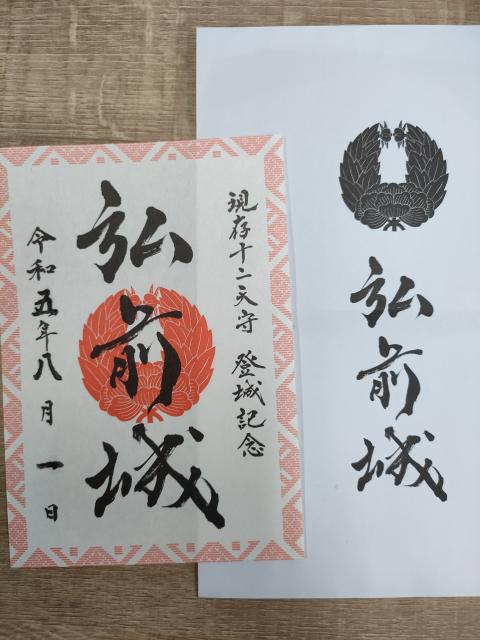 現存十二天守 登城記念
弘前城
令和五年八月一日
弘前城